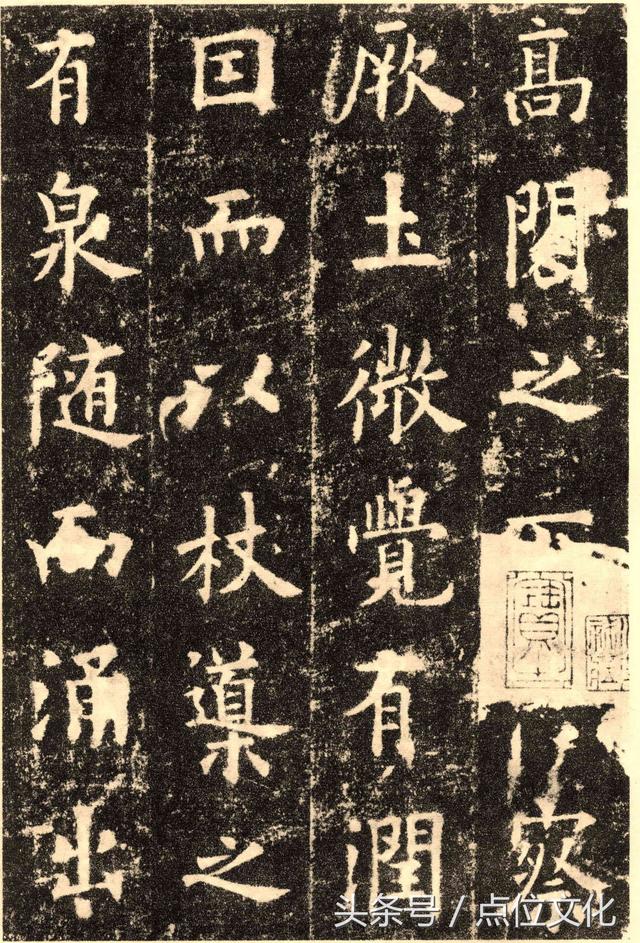 髙閣之察
厥土微覺有潤
囙而以杖導之
有泉随而涌出
头条号 / 点位文化